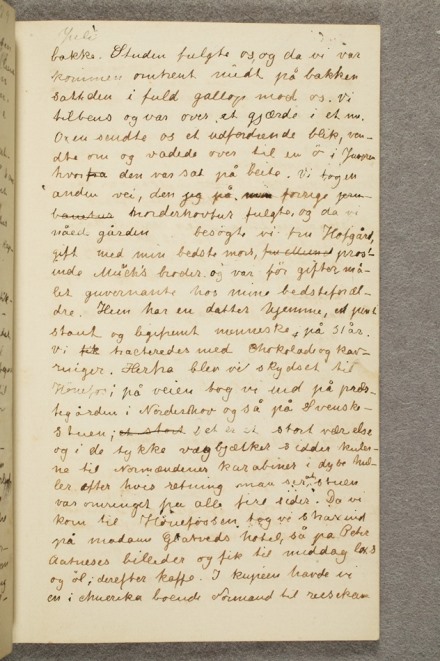 Juli
bakke. Studen fulgte os, og da vi var
kommen omtrent midt på bakken
satte den i fuld gallop mod os. Vi
tilbens og var over et gjærde i et nu.
Oxen sendte os et udfordrende blik, ven-
dte om og vadede over til en ö i
hvorfra den var sat på beite. Vi tog en
anden vei, den jeg på min forrige
Norderhovtur fulgte, og da vi
nåede gården besøgte vi fru Hofgård,
gift med min bedstemors, prost
inde Münchs broder, og var för giftermå-
let guvernante hos mine bedsteforæl-
dre. Hun har en datter hjemme, et
stout og menneske, på 31 år.
Vi tracteredes med Chokolad og kav-
ringer. Herfra blev vi skydset til
Hönefos; på veien tog vi ind på præs-
tegården i Norderhov og så på Svenske-
stuen; det er et stort værelse
og i de tykke vægbjælker sidder kuler-
ne til Normændenes karabiner i dybe hul-
ler efter hvis retning man ser at stuen
var omringet fra alle fire sider. Da vi
kom til Hönefossen, tog vi strax ind
på madame Glatveds hotel, så på Peder
Aatneses billeder og fik til middag lax
og öl; derefter kaffe. I kupeen havde vi
en i Amerika boende Normand til reiseka